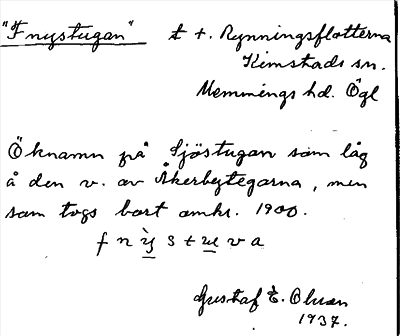 "Fnystugan" t t. Rynningsflotterna
Kimstads sn.
Memmings hd. Ögl
Öknamn på Sjöstugan som låg
å den v. av Åkerbytegarna, men
som togs bort omkr. 1900.
f n ỳ s t u v a
Gustaf E. Olsson
1937.